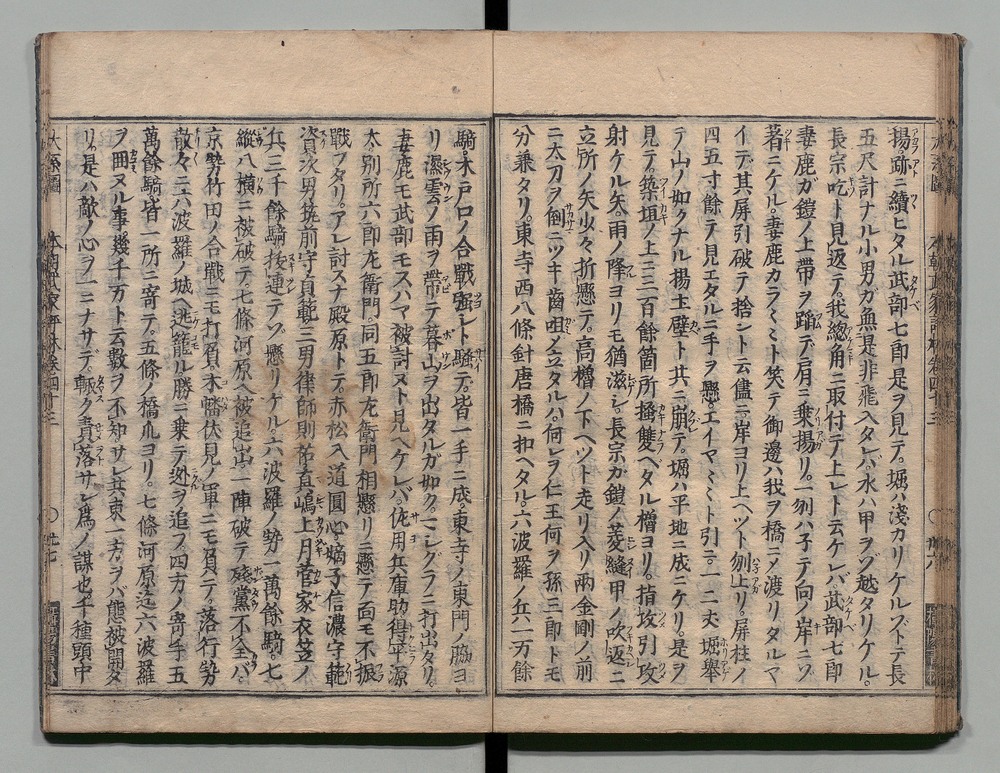 揚跡ニ續ヒタル武部七郎是ヲ見テ。堀ハ淺カリケルゾトテ長
五尺計ナル小男ガ無是非飛入タレバ水ハ甲ヲゾ越タリケル。
長宗吃ト見返テ我總角ニ取付テ上レトテケレバ武部七郎
妻鹿ガ鎧ノ上帶ヲ蹈デ肩ニ乘揚リ。一刎ハ子テ向ノ岸ニゾ
著ニケル。妻鹿カラ〱ト笑テ御邊ハ我ヲ橋ニメ渡リタルマ
イデ其屏引破テ捨ントテ云儘ニ。岸ヨリ上ヘツト刎上リ。屏柱ノ
四五寸餘テ見エタルニ手ヲ懸。エイヤ〱ト引ニ。一二丈堀擧
テ山ノ如クナル揚土壁ト共ニ崩テ。堀ハ平地ニ成ニケリ。是ヲ
見テ。築垣ノ上ニ三百餘箇所搔雙ヘタル櫓ヨリ。指攻引攻
射ケル矢。雨ノ降ヨリモ猶滋シ。長宗ガ鎧ノ菱縫甲ノ吹返ニ
立所ノ矢少々折懸テ。高櫓ノ下ヘツト走リ入リ兩金剛ノ前
ニ太刀ヲ倒ニツキ齒咀ノ立タルハ。何レヲ仁王何ヲ孫三郎トモ
分兼タリ。東寺西八條針唐橋ニ扣ヘタル。六波羅ノ兵一万餘
騎。木戸口ノ合戰強シト騷テ。皆一手ニ成。東寺ノ東門ノ脇ヨ
リ濕雲ノ雨ヲ帶テ暮山ヲ出タルガ如ク。マシグラニ打出タリ。
妻鹿モ武部モスハマ被討ヌト見ヘケレバ。佐用兵庫助得平源
太。別所六郎左衛門。同五郎左衛門相懸リニ懸テ面モ不振
戰フタリ。アレ討スナ殿原トテ。赤松入道圓心。嫡子信濃守範
資次男筑前守貞範三男律師則祐眞嶋上月菅家衣笠ノ
兵三千餘騎拔連テゾ。懸リケル。六波羅ノ勢一萬餘騎。七
縱八横ニ被破テ。七條河原ヘ被追出一陣破テ殘黨不全バ。
京勢竹田ノ合戰ニモ打負。木幡伏見ノ軍ニモ負テ。落行勢
散々ニ六波羅ノ城ヘ逃籠ル勝ニ乘テ迯ヲ追フ四方ノ寄手五
萬餘騎。皆一所ニ寄テ。五條ノ橋爪ヨリ。七條河原迄六波羅
ヲ囲ヌル事。幾千万ト云數ヲ不知。サレ共東一方ヲバ態被開タ
リ。是ハ敵ノ心ヲ一ニナサデ。輙ク責落サレ爲ノ謀也。千種頭中